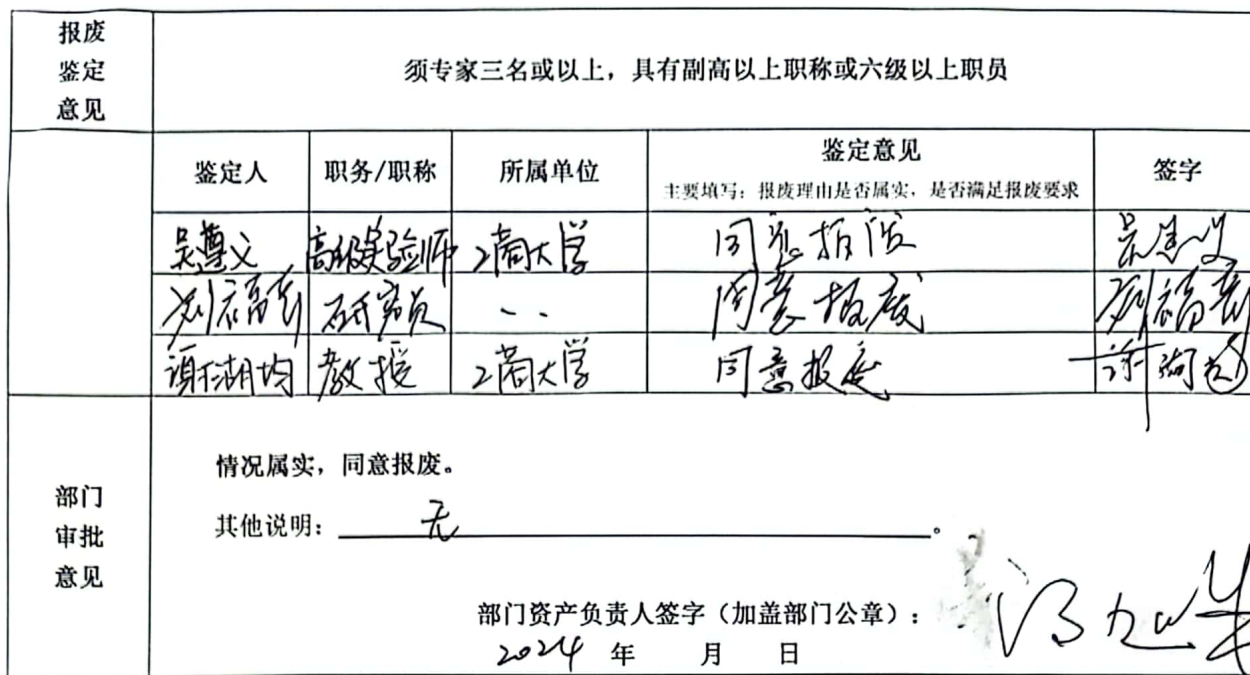 报废
鉴定
意见
须专家三名或以上，具有副高以上职称或六级以上职员
鉴定人 职务/职称 所属单位 鉴定意见 签字
主要填写：报废理由是否属实，是否满足报废要求
吴遵义 高级实验师 工商大学 同意报废 吴遵义
刘福 研究员 同意报废 刘福
谢湖均 教授 工商大学 同意报废 谢湖均
部门
审批
意见
情况属实，同意报废。
其他说明：无。
部门资产负责人签字（加盖部门公章）：
2024 年 月 日